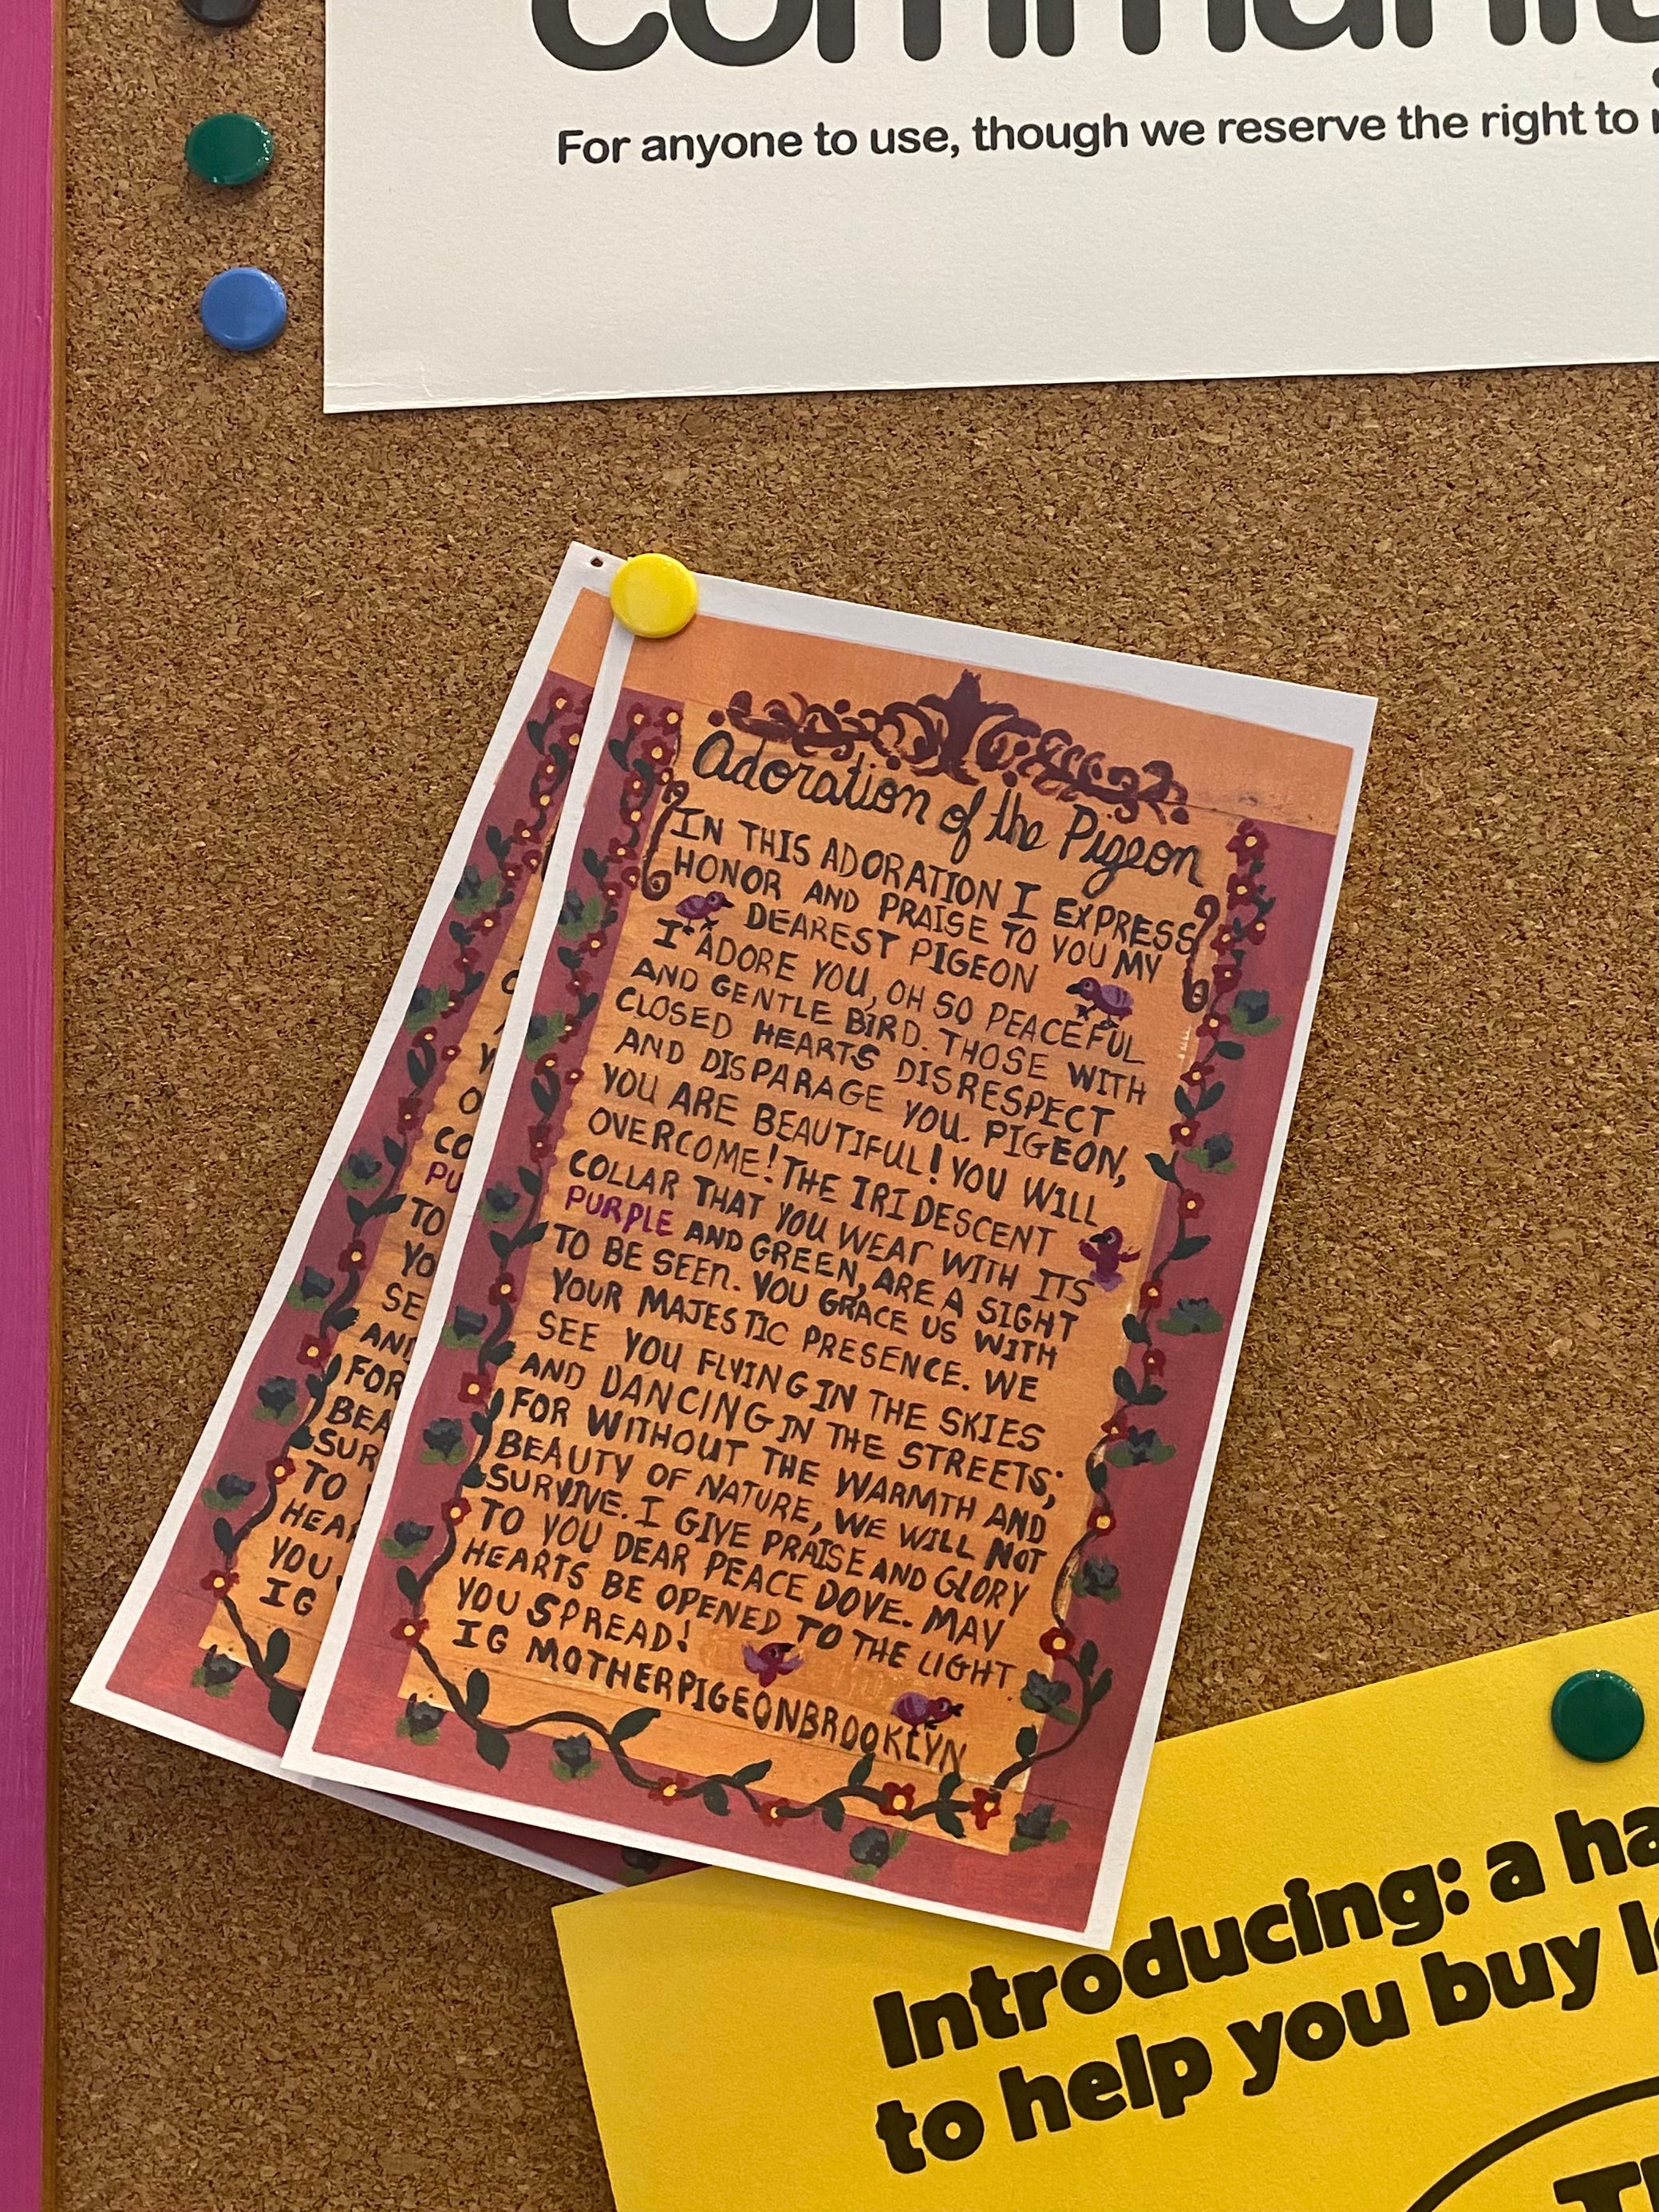 communit
For anyone to use, though we reserve the right to
Adoration of the Pigeon
IN THIS ADORATION I EXPRESS
HONOR AND PRAISE TO YOU MY
DEAREST PIGEON
I ADORE YOU, OH SO PEACEFUL
AND GENTLE BIRD. THOSE WITH
CLOSED HEARTS DISRESPECT
AND DISPARAGE YOU. PIGEON,
YOU ARE BEAUTIFUL! YOU WILL
OVERCOME! THE IRIDESCENT
COLLAR THAT YOU WEAR WITH ITS
PURPLE AND GREEN, ARE A SIGHT
TO BE SEEN. YOU GRACE US WITH
YOUR MAJESTIC PRESENCE. WE
SEE YOU FLYING IN THE SKIES
AND DANCING IN THE STREETS;
FOR WITHOUT THE WARMTH AND
BEAUTY OF NATURE, WE WILL NOT
SURVIVE. I GIVE PRAISE AND GLORY
TO YOU DEAR PEACE DOVE. MAY
HEARTS BE OPENED TO THE LIGHT
YOU SPREAD!
IG MOTHERPIGEONBROOKLYN
CO
PU
TO
YO
SE
AND
FOR
BEA
SUR
TO
HEA
YOU
IG
Introducing: a ha
to help you buy l